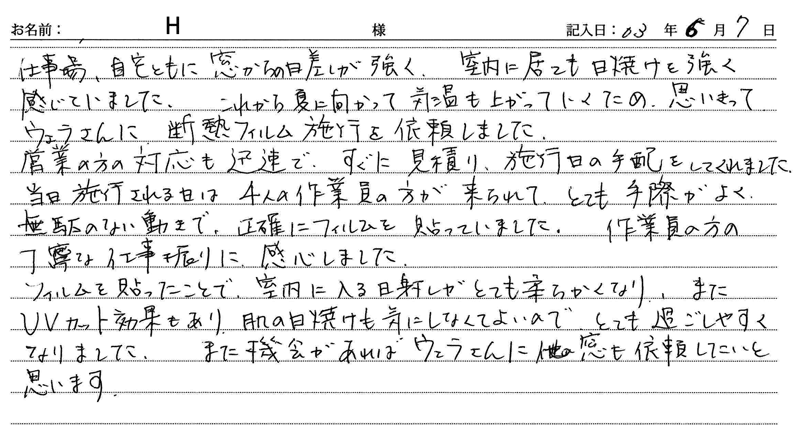 お名前： H 様 記入日：03 年 6 月 7 日
仕事場、自宅ともに窓からの日差しが強く、室内に居ても日焼けを強く
感じていました。 これから夏に向かって気温も上がっていくため、思いきって
ウェラさんに断熱フィルム施行を依頼しました。
営業の方の対応も迅速で、すぐに見積り、施行日の手配をしてくれました。
当日施行される日は4人の作業員の方が来られて、とても手際がよく、
無駄のない動きで、正確にフィルムを貼っていました。 作業員の方の
丁寧な仕事振りに、感心しました。
フィルムを貼ったことで、室内に入る日射しがとても柔らかくなり、また
UVカット効果もあり、肌の日焼けも気にしなくてよいので とても過ごしやすく
なりました。 また機会があればウェラさんに他の窓も依頼したいと
思います。